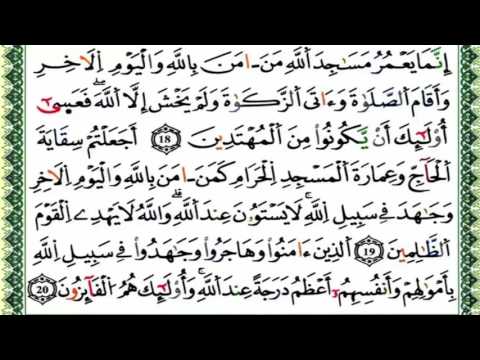 إِنَّمَا يَعْمُرُ مَسَٰجِدَ ٱللَّهِ مَنَ ـ امَنَ بِاللَّهِ وَالْيَوْمِ اِ۬لَاخِرِ
وَأَقَامَ اَ۬لصَّلَوٰةَ وَءَاتَى اَ۬لزَّكَوٰةَ وَلَمْ يَخْشَ إِلَّا اَ۬للَّهَۖ فَعَسِىٰٓ
أُوْلَٰٓئِكَ أَنْ يَّكُونُواْ مِنَ اَ۬لْمُهْتَدِينَ 18 أَجَعَلْتُمْ سِقَايَةَ
اَ۬لْحَآجِّ وَعِمَارَةَ اَ۬لْمَسْجِدِ اِ۬لْحَرَامِ كَمَنَ ـ امَنَ بِاللَّهِ وَالْيَوْمِ اِ۬لَاخِرِ
وَجَٰهَدَ فِے سَبِيلِ اِ۬للَّهِۚ لَا يَسْتَوُۥنَ عِندَ اَ۬للَّهِۗ وَاللَّهُ لَا يَهْدِے اِ۬لْقَوْمَ
اَ۬لظَّٰلِمِينَ 19 اَ۬لذِينَ ءَامَنُواْ وَهَاجَرُواْ وَجَٰهَدُواْ فِے سَبِيلِ اِ۬للَّهِ
بِأَمْوَٰلِهِمْ وَأَنفُسِهِمُۥٓ أَعْظَمُ دَرَجَةً عِندَ اَ۬للَّهِۚ وَأُوْلَٰٓئِكَ هُمُ اُ۬لْفَآئِزُونَ 20